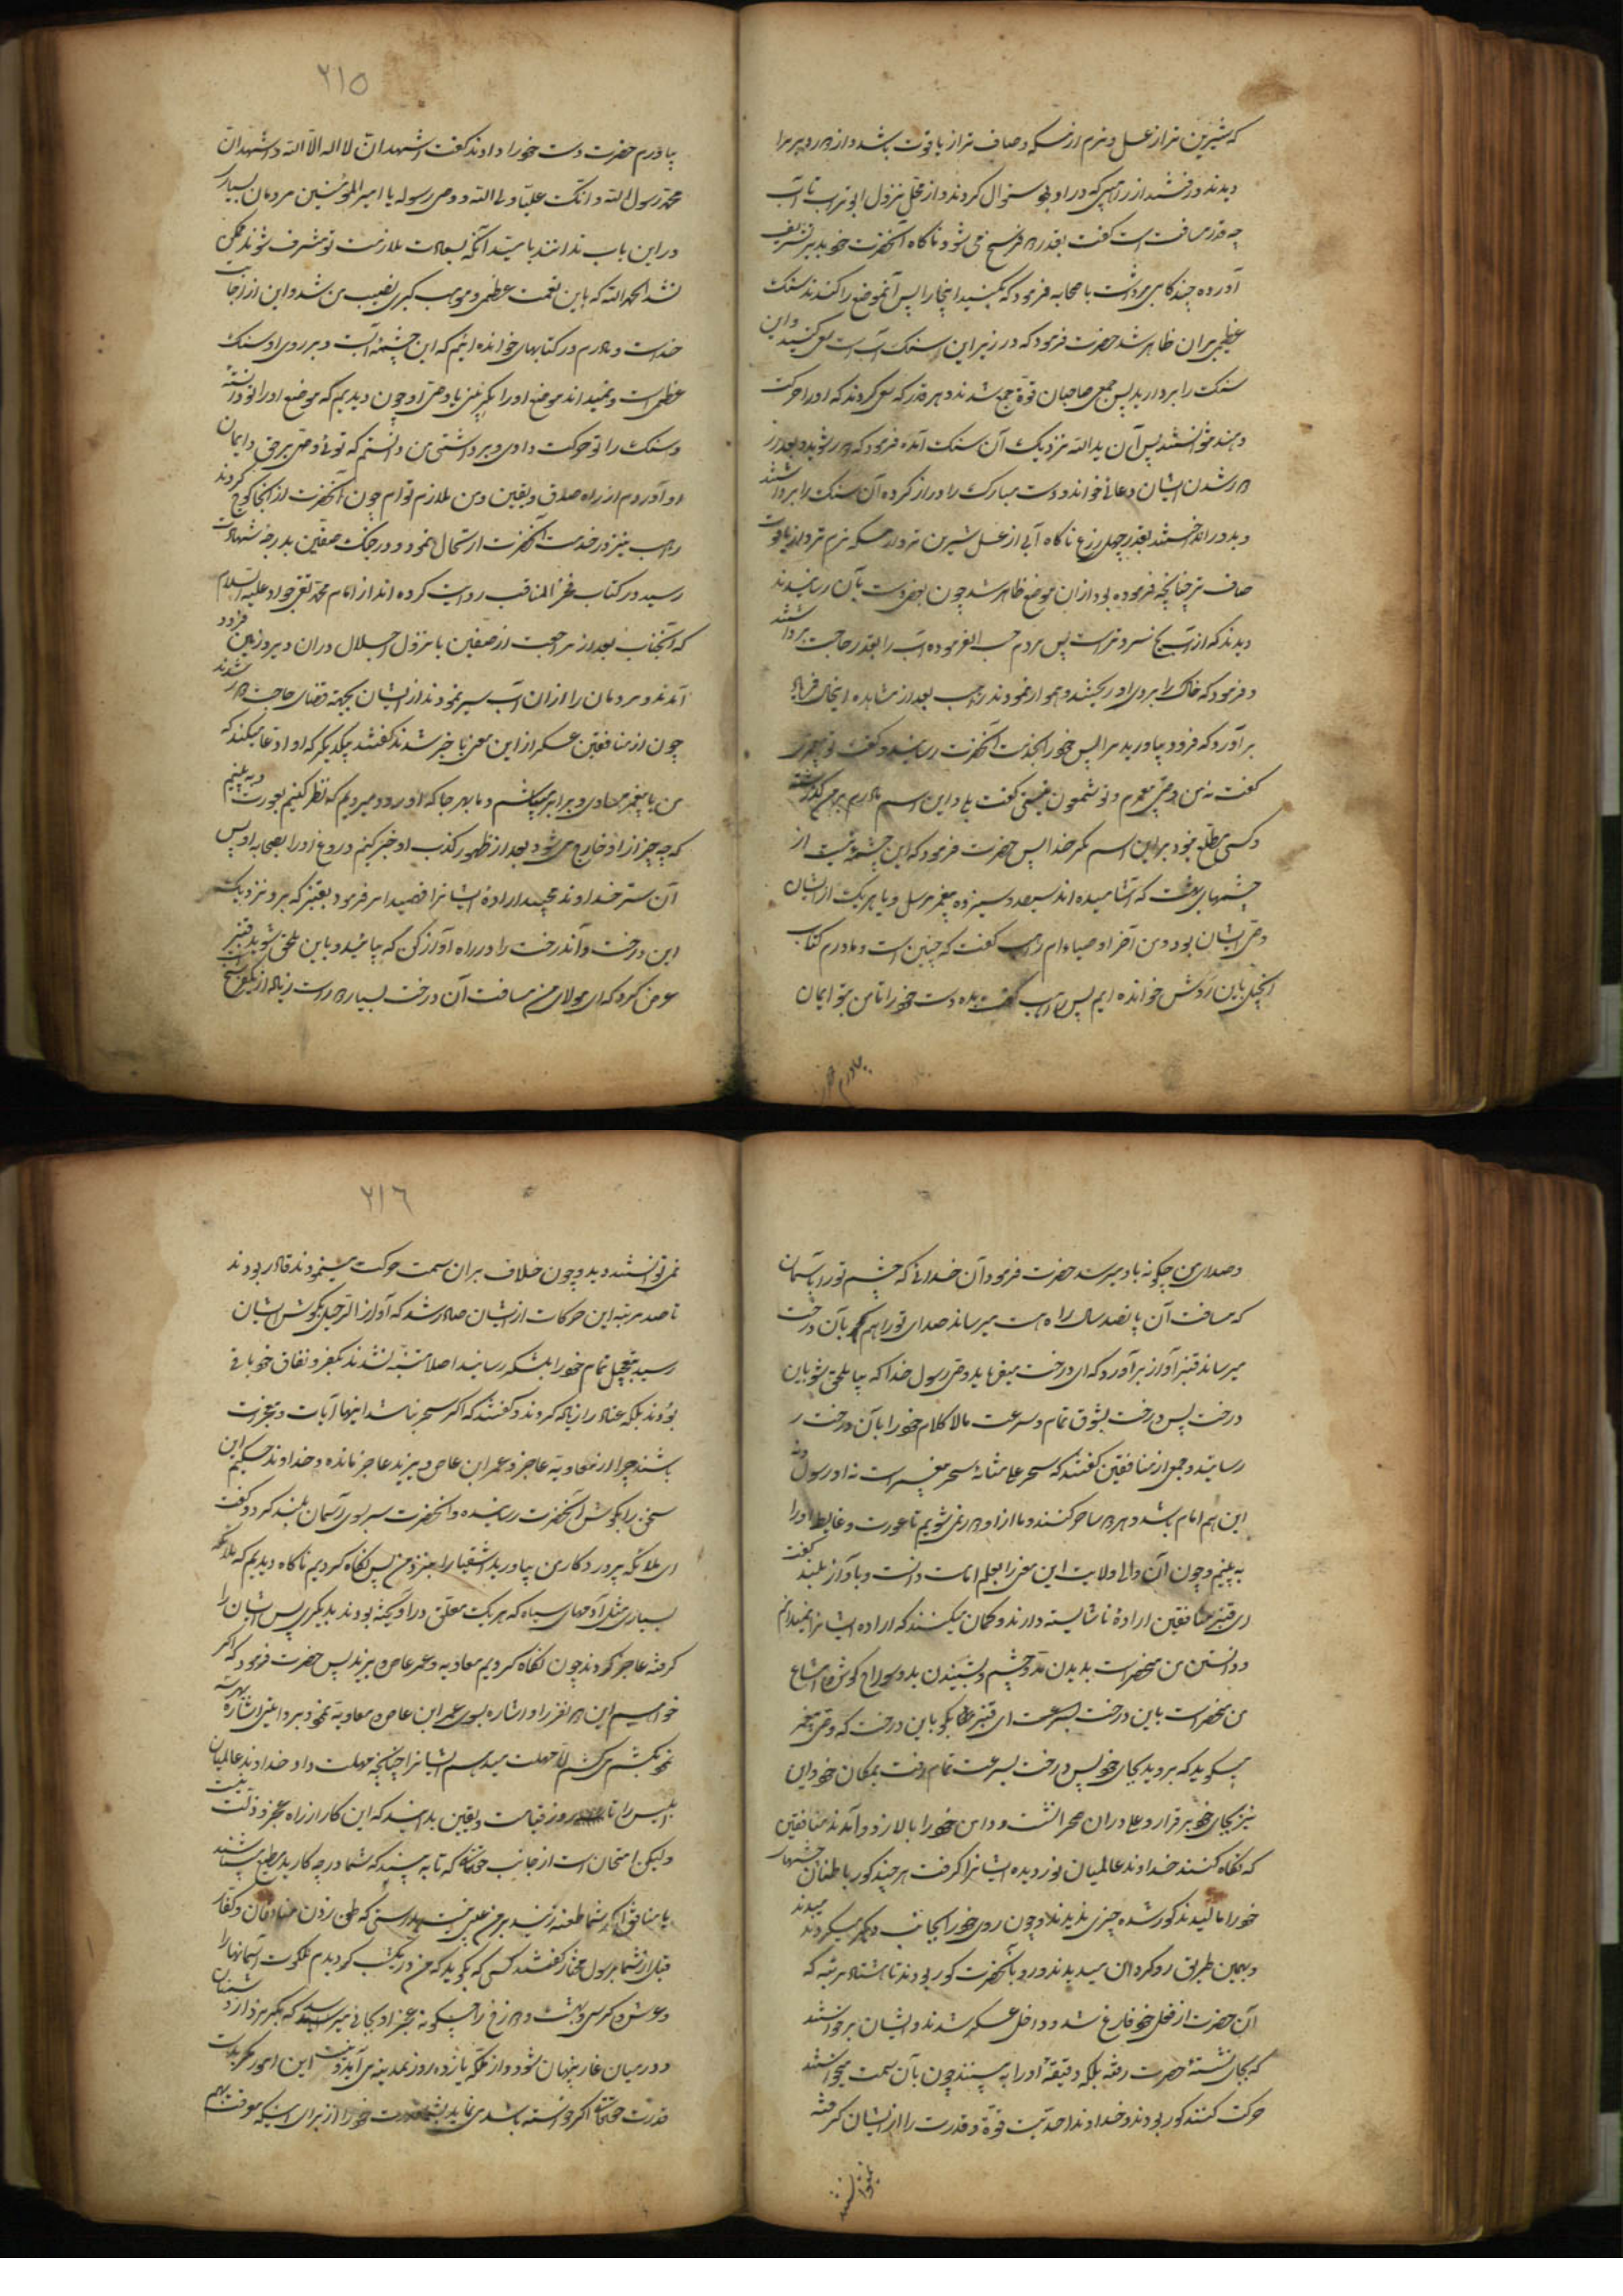 که شیرین تر از عسل و نرم تر از مسکه و صاف تر از یاقوت باشد و از دور دیر مرا
دیدند و رفتند از راهبی که در او بود سؤال کردند و از محل نزول ابو تراب تا آب
چه قدر مسافت است گفت بقدر دو فرسخ می شود ناگاه آنحضرت خود به دیر تشریف
آورده چند گامی برداشت با صحابه فرمود که بکنید اینجا را پس آنموضع را کندند سنک
عظیمی بران ظاهر شد حضرت فرمود که در زیر این سنک آب است سعی کنید و این
سنک را بردارید پس جمعی صاحبان قوة جمع شدند و هر قدر که سعی کردند که او را حرکت
دهند نتوانستند پس آن ید الله نزدیک آن سنک آمده فرمود که دور شوید و بعد از
دور شدن ایشان دعائی خواند و دست مبارک را دراز کرده آن سنک را برداشتند
و بدور انداختند بقدر چهل زرع ناگاه آبی از عسل شیرین تر و از مسکه نرم تر و از یاقوت
صاف تر چنانچه فرموده بود ازان موضع ظاهر شد چون بعضی دست بآن رسانیدند
دیدند که از یخ سردتر است پس مردم حسب الفرموده آب را بقدر حاجت برداشتند
و فرمود که خاک را بروی او ریختند و هموار نمودند راهب بعد از مشاهده اینحال فریاد
بر آورد که فرود بیاورید مرا پس خود را بخدمت آنحضرت رسانید و گفت تو پیغمبری
گفت نه من وصی پیغمبرم و تو شمعون نیستی گفت بلی و این اسم مادرم بر من گذاشته
و کسی مطلع نبود بر این اسم مگر خدا پس حضرت فرمود که این چشمه ایست از
چشمهای بهشت که آشامیده اند سیصد و سیزده پیغمبر مرسل و با هر یک از ایشان
وصی ایشان بود و من آخر اوصیاء ام راهب گفت که چنین است و مادرم کتاب
انجیل باین روش خوانده ایم پس راهب گفت بده دست خود را تا من بتو ایمان
بیاورم حضر
٢١٥
بیاورم حضرت دست خود را دادند گفت اشهد ان لا اله الا الله و اشهد ان
محمد رسول الله و انک علیا ولی الله و وصی رسوله یا امیر المؤمنین مردمان بسیار
در این باب ندانند بامید آنکه بسعادت ملازمت تو مشرف شوند ممکن
نشد الحمد لله که باین نعمت عظمی و موهبت کبری نصیب من شد و این از جانب
خداست و مادرم در کتابهای خوانده ایم که این چشمه آبست و بر روی او سنک
عظیمی است و نمیداند موضع او را مگر نبی یا وصی او چون دیدیم که موضع او را تو دانسته
و سنک را تو حرکت دادی و برداشتی من دانستم که توئی وصی بر حق و ایمان
آوردم از راه صدق و یقین و من ملازم توام چون آنحضرت از آنجا کوچ کردند
راهب نیز در خدمت آنحضرت ارتحال نمود و در جنک صفین بدرجهٔ شهادت
رسید در کتاب فخر المناقب روایت کرده اند از امام محمد تقی جواد علیه السلام
که آنجناب بعد از مراجعت از صفین با نزول اجلال دران دیر و زمین فرود
آمدند و مردمان را ازان آب سیر نمودند از ایشان بجهة قضای حاجت دور شدند
چون از منافقین عسکر از این معنی با خبر شدند گفتند بیکدیگر که او ادعا میکند که
من با پیغمبر مساوی و برابر میباشم و ما بهر جا که او رود میرویم که نظر کنیم بعورت او و به بینیم
که چه چیز از او خارج می شود بعد از ظهور کذب او خبر کنم دروغ او را بصحابه او پس
آن ستر خداوند مجید اراده ایشانرا فهمید امر فرمود بقنبر که برو نزدیک
این درخت و آندرخت را در راه آواز کن که بیائید و باین ملحق شوید قنبر
عرض کرد که ای مولای من مسافت آن درخت بسیار دور است زیاده از یکفرسخ است
و صدای من چگونه باو میرسد حضرت فرمود آن خدائی که چشم تو را باسمان
که مسافت آن پانصد سال راه است میرساند صدای تو را هم بآن درخت
میرساند قنبر آواز بر آورد که ای درخت میفرماید وصی رسول خدا که بیا ملحق شو باین
درخت پس درخت بشوق تمام و سرعت مالا کلام خود را بآن درخت
رسانید و جمعی از منافقین گفتند که سحر علی مشابه سحر پیغمبر است نه او رسول و نه
این هم امام باشد و هر دو ساحر کنند و ما از او دور نمی شویم تا عورت و غایط او را
به بینیم و چون آن والی ولایت این معنی را بعلم امامت دانست و باواز بلند گفت
ای قنبر منافقین ارادهٔ ناشایسته دارند و گمان میکنند که اراده ایشانرا نمیدانم
و دانستن من منحصر است بدیدن دو چشم و شنیدن بدو سوراخ گوش و امتناع
من منحصر است باین درخت بسرعت ای قنبر بگو باین درخت که وصی پیغمبر
میگوید که بروید بجای خود پس درخت بسرعت تمام رفت بمکان خود و این
نیز بجای خود برقرار و علی دران صحرا نشست و دامن خود را بالا زد و آمدند منافقین
که نگاه کنند خداوند عالمیان نور دیده ایشانرا گرفت هر چند کور باطنان چشمهای
خود را مالیدند کور شده چیزی ندیدند و چون روی خود را بجانب دیگر میکردند میدیدند
و بهمین طریق رو گردان میدیدند و رو بآنحضرت کور بودند تا هشتاد مرتبه که
آن حضرت از فعل خود فارغ شد و داخل عسکر شدند و ایشان برخواستند
که بجای نشستهٔ حضرت رفته بلکه دقیقهٔ او را به بینند چون بآن سمت میخواستند
حرکت کنند کور بودند و خداوند احدیت قوة و قدرت را از ایشان گرفته
نمیتوانستند
٢١٦
نمی توانستند دید و چون خلاف بران سمت حرکت مینمودند قادر بودند
تا صد مرتبه این حرکات از ایشان صادر شد که آواز الرحیل بگوش ایشان
رسید بتعجیل تمام خود را بلشکر رسانید اصلا متنبه نشدند بکفر و نفاق خود باقی
بودند بلکه عناد را زیاده کردند و گفتند که اگر سحر نباشد اینها آیات و معجزات
باشند چرا از معاویه عاجز و عمر ابن عاص و یزید عاجز مانده و خداوند حکیم این
سخن را بگوش آنحضرت رسانیده و آنحضرت سر بسوی آسمان بلند کرد و گفت
ای ملائکه پروردگار من بیاورید اشقیا را بنزد من پس نگاه کردیم ناگاه دیدیم که ملائکه
بسیاری مثل آدمهای سیاه که هر یک معلق در آویخته بودند بدیگری پس ایشان را
گرفته عاجز کردند چون نگاه کردیم معاویه و عمر عاص و یزید پس حضرت فرمود که اگر
خواهیم این دو نفر را و اشاره بسوی عمر ابن عاص و معاویه نمود بردایتی اشاره بهر سه
نمود بکشم می کشم لا مهلت میدهم ایشانرا چنانچه مهلت داد خداوند عالمیان
ابلیس را تا روز قیامت و یقین بدانید که این کار از راه عجز و ذلت نیست
و لیکن امتحان است از جانب حقتعالی که تا به بیند که شما در چه کارید مطیع میباشند
یا منافق اگر شما طعنه زنید بر من عیبی نیست بدرستی که طعن زدن منافقان و کفار
قبل از شما برسول مختار گفتند کسی که بگوید که من در یکشب گردیدم ملکوت آسمانها را
و عرش و کرسی و بهشت و دوزخ را چگونه عجز او بجائی میرسد که بگریزد از دشمنان
و در میان غار پنهان شود و از مکه یازده روز بمدینه می آید نیست این امور مگر بدست
قدرت حقتعالی اگر خواسته باشد می نماید بشما قدرت خود را از برای اینکه معرفت بهم